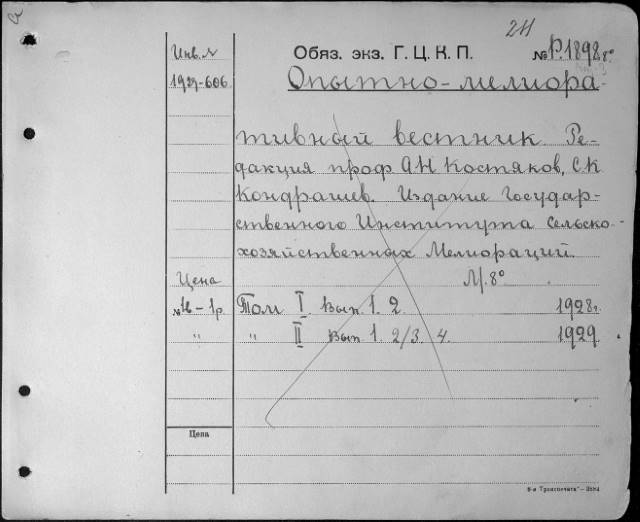 211
Инв. № Обяз. экз. Г. Ц. К. П. № Р.1898 8°
1929-606 Опытно-мелиора-
тивный вестник. Ре-
дакция проф АН Костяков, С.К
Кондрашев. Издание Государ-
ственного Института Сельско-
хозяйственных Мелиораций.
Цена М. 8°
Том I. Вып. 1. 2. 1928г.
" " II Вып. 1. 2/3. 4. 1929.
Цена